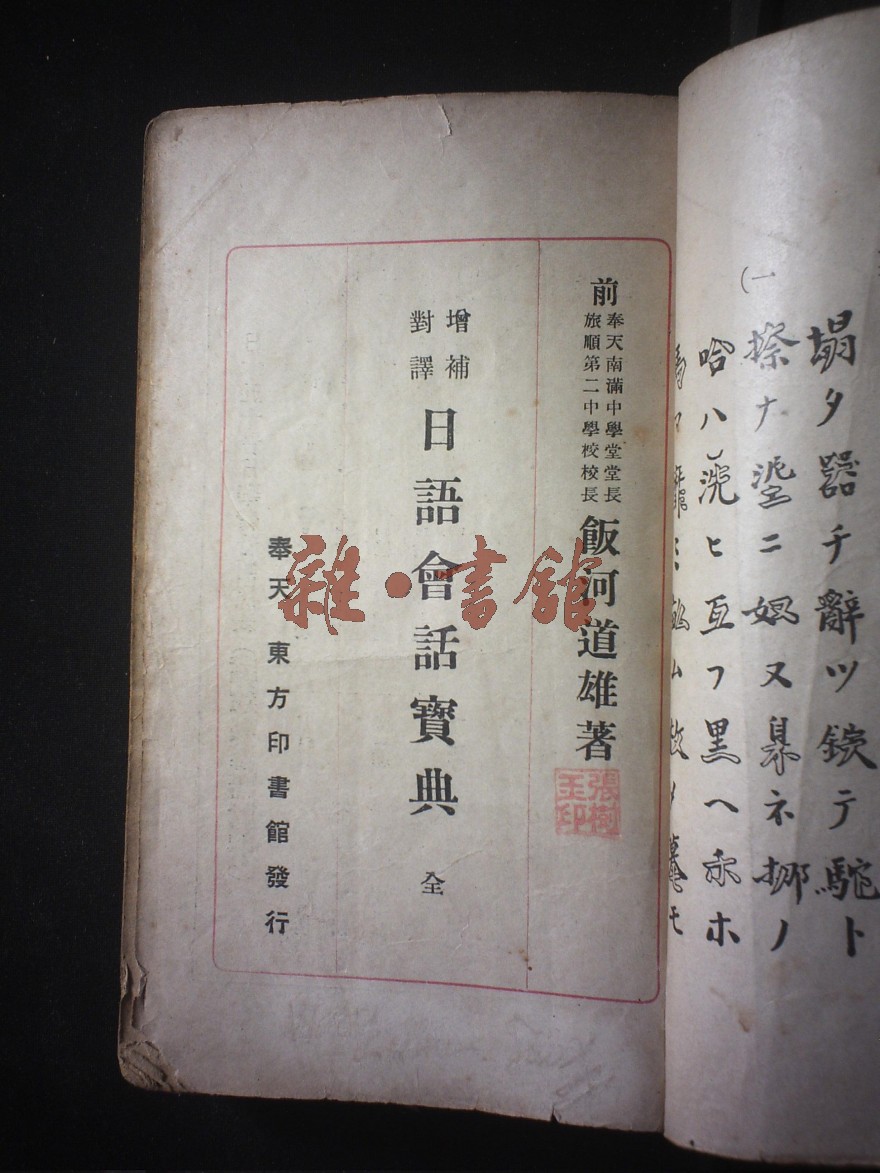 （一
塌タ器チ辭ツテ駝ト
ナニヌ臬ネ挪ノ
哈ハヒ互フ黒ヘホ
馬マミムメモ
前
奉天南滿中學堂堂長
旅順第二中學校校長
飯河道雄著
張樹玉印
增補
對譯
日語會話寶典 全
奉天 東方印書館發行
雜·書館